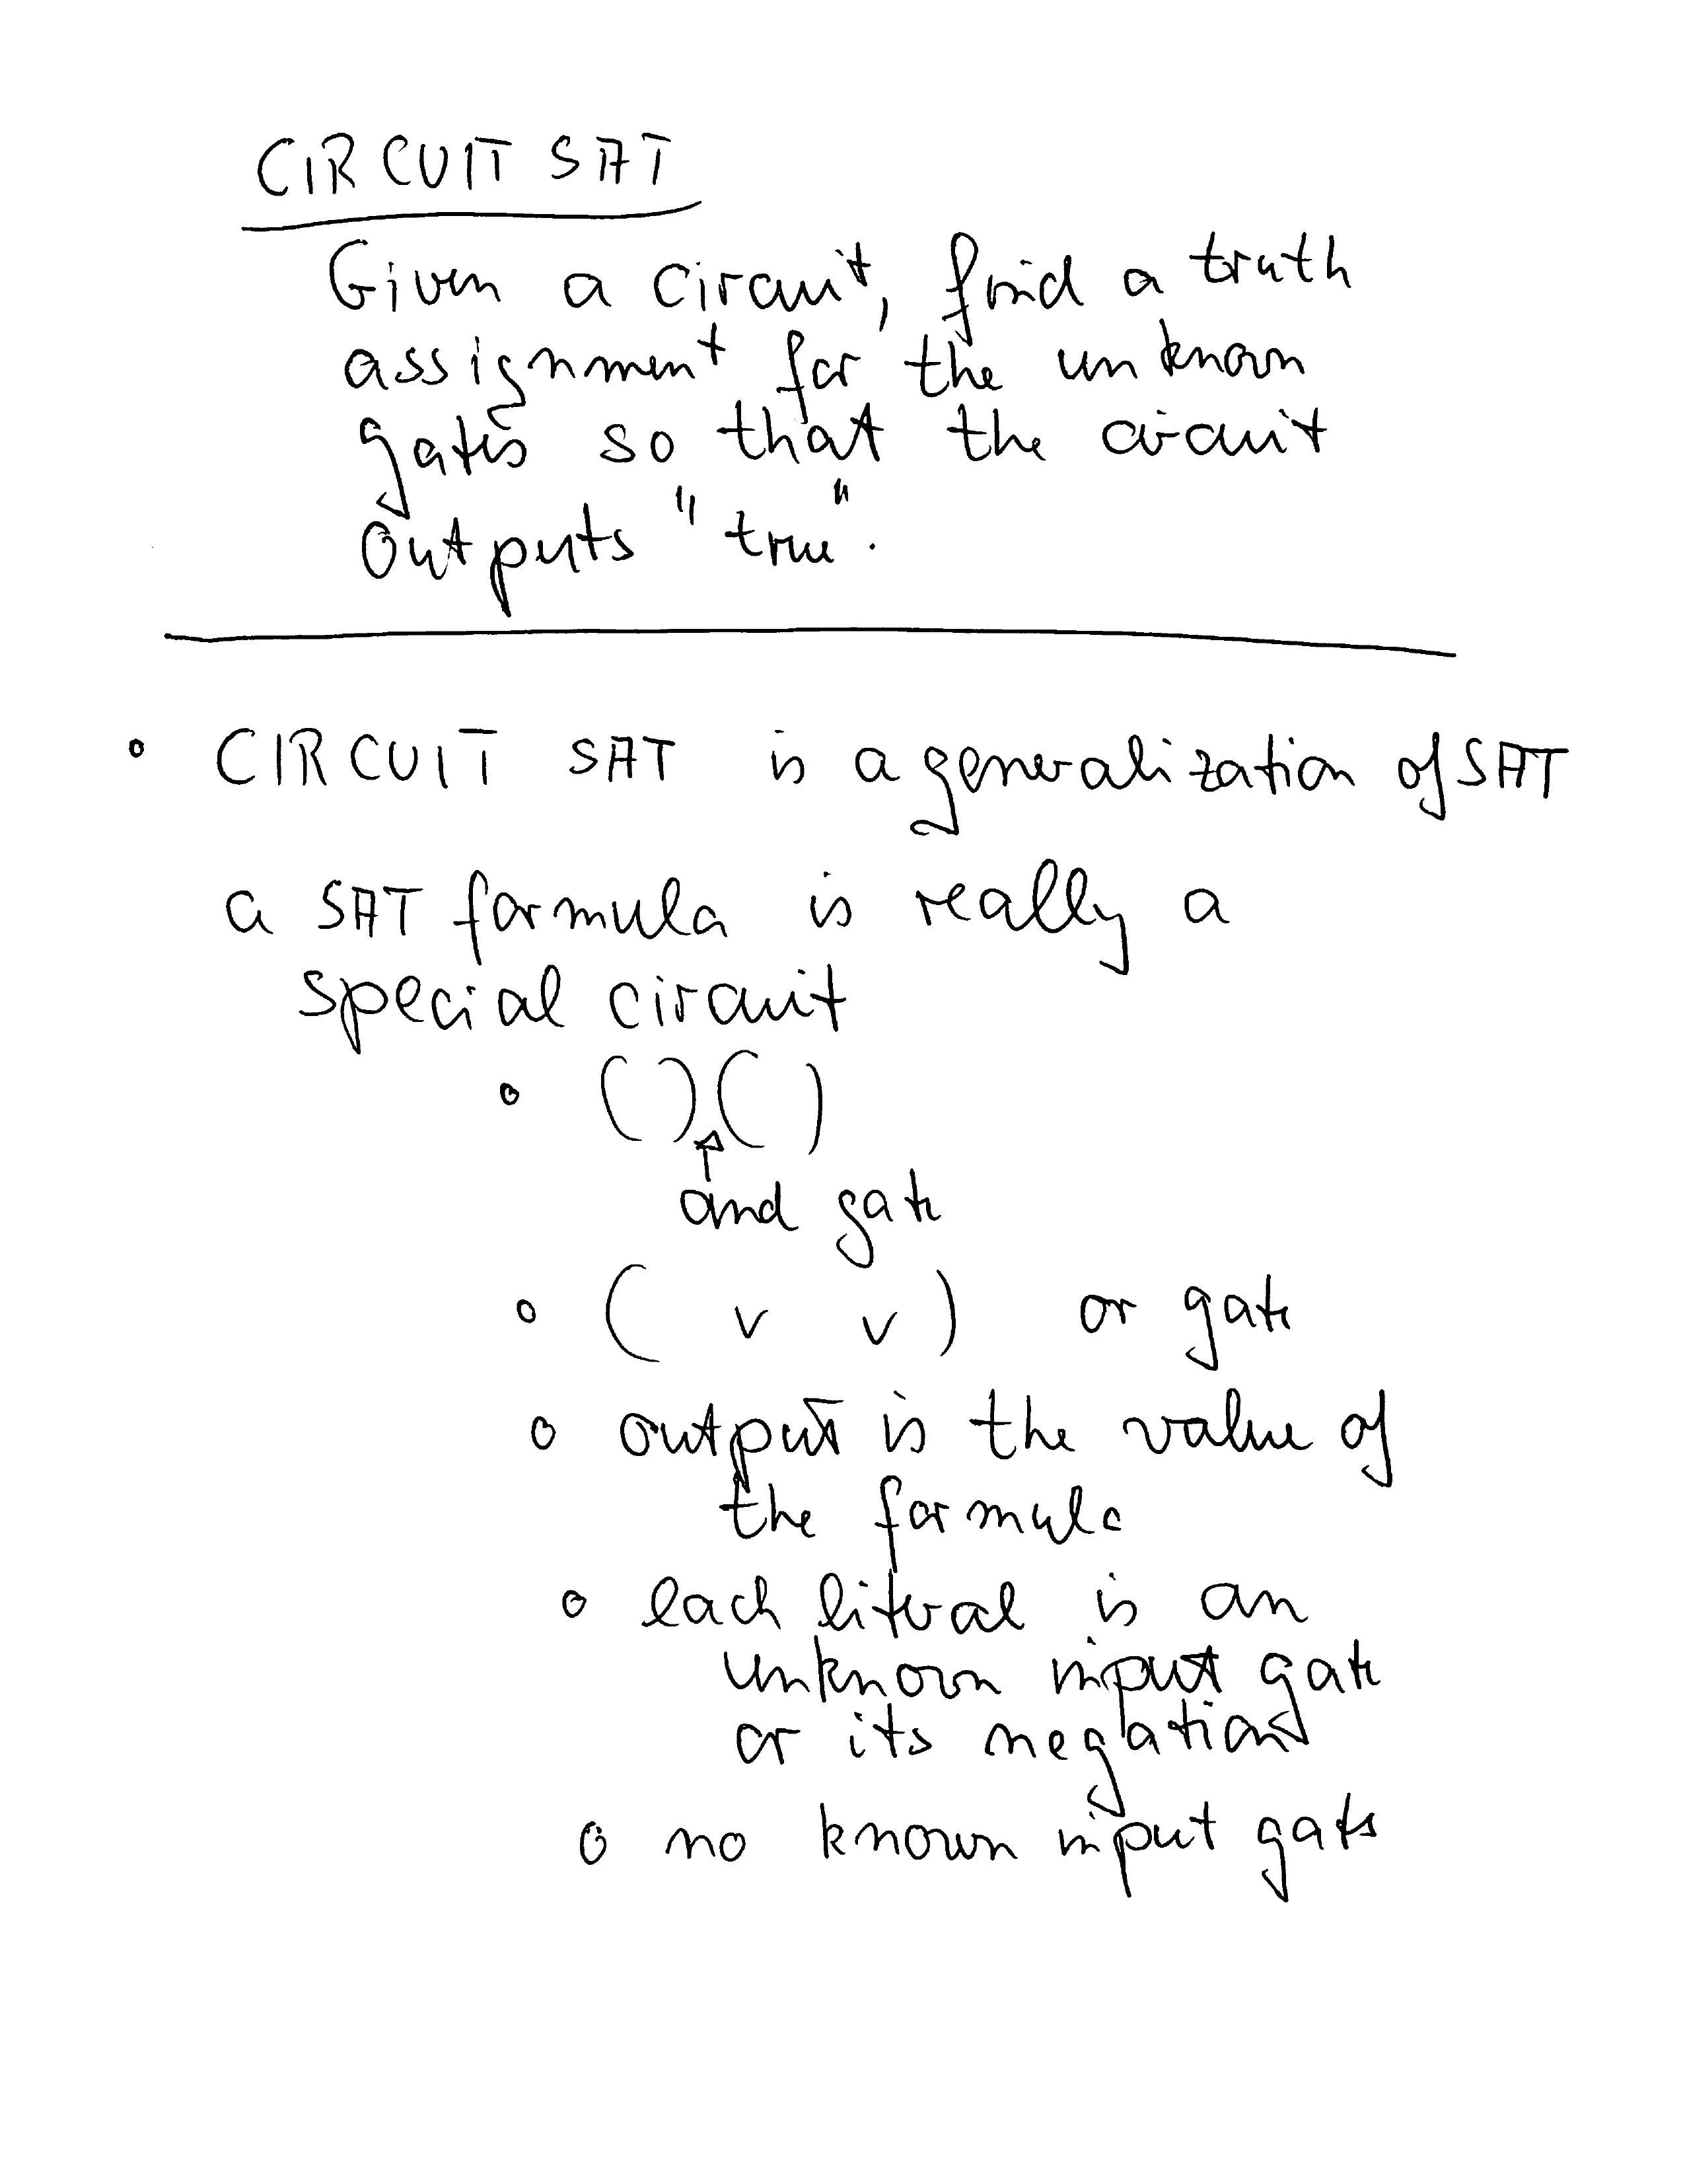 CIRCUIT SAT
Given a circuit, find a truth
assignment for the unknown
gates so that the circuit
outputs "true".
• CIRCUIT SAT is a generalization of SAT
a SAT formula is really a
special circuit
• ( ) ( )
↑
and gate
• ( v v ) or gate
• output is the value of
the formula
• each literal is an
unknown input gate
or its negation
• no known input gates